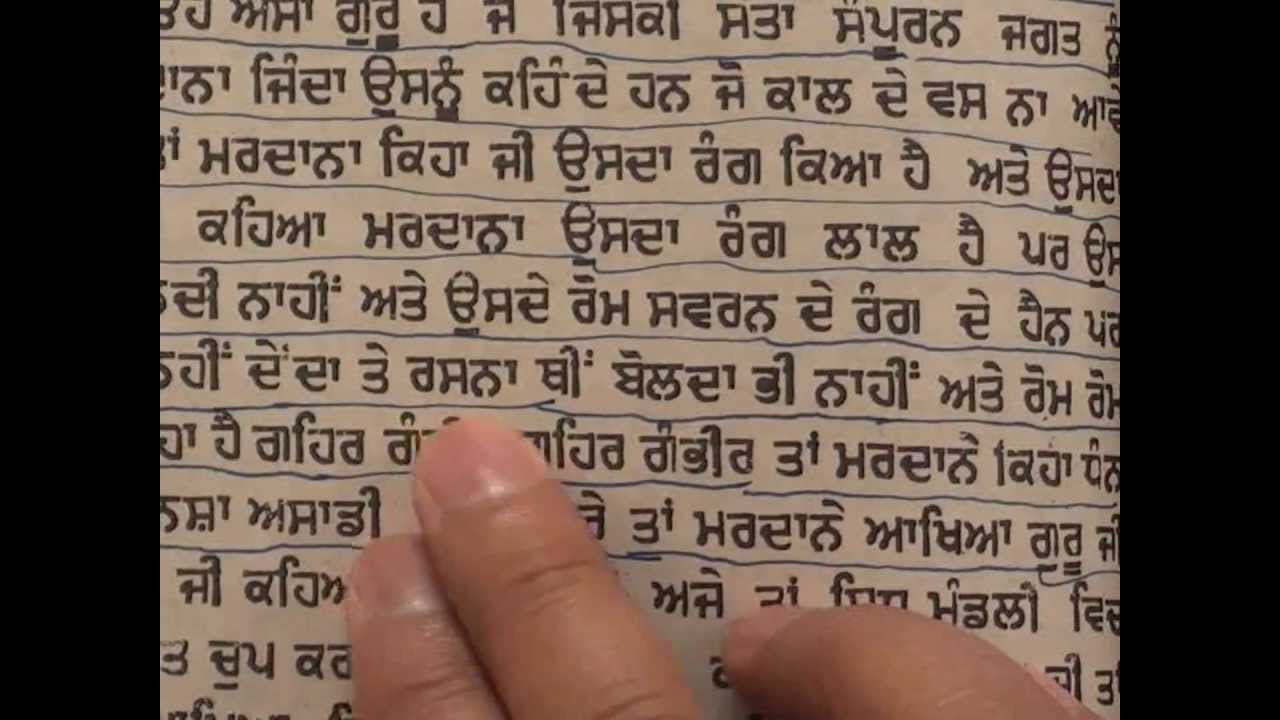 ਅਸਾਂ ਗੁਰੂ ਹੈ ਜੋ ਜਿਸਕੀ ਸਤਾ ਸੰਪੂਰਨ ਜਗਤ ਨੂੰ
ਜਿੰਦਾ ਉਸਨੂੰ ਕਹਿੰਦੇ ਹਨ ਜੋ ਕਾਲ ਦੇ ਵਸ ਨਾ ਆਵੇ
ਤਾਂ ਮਰਦਾਨਾ ਕਿਹਾ ਜੀ ਉਸਦਾ ਰੰਗ ਕਿਆ ਹੈ ਅਤੇ ਉਸਦਾ
ਕਹਿਆ ਮਰਦਾਨਾ ਉਸਦਾ ਰੰਗ ਲਾਲ ਹੈ ਪਰ ਉਸ
ਨਾਹੀਂ ਅਤੇ ਉਸਦੇ ਰੋਮ ਸਵਰਨ ਦੇ ਰੰਗ ਦੇ ਹੈਨ ਪਰ
ਨਹੀਂ ਦੇਂਦਾ ਤੇ ਰਸਨਾ ਥੀਂ ਬੋਲਦਾ ਭੀ ਨਾਹੀਂ ਅਤੇ ਰੋਮ ਰੋਮ
ਹੈ ਗਹਿਰ ਗਹਿਰ ਗੰਭੀਰ ਤਾਂ ਮਰਦਾਨੇ ਕਿਹਾ ਧੰਨ
ਅਸਾਡੀ ਤਾਂ ਮਰਦਾਨੇ ਆਖਿਆ ਗੁਰੂ ਜੀ
ਜੀ ਅਜੇ ਤਾਂ ਇਸ ਮੰਡਲੀ ਵਿਚ
ਚੁਪ ਕਰ